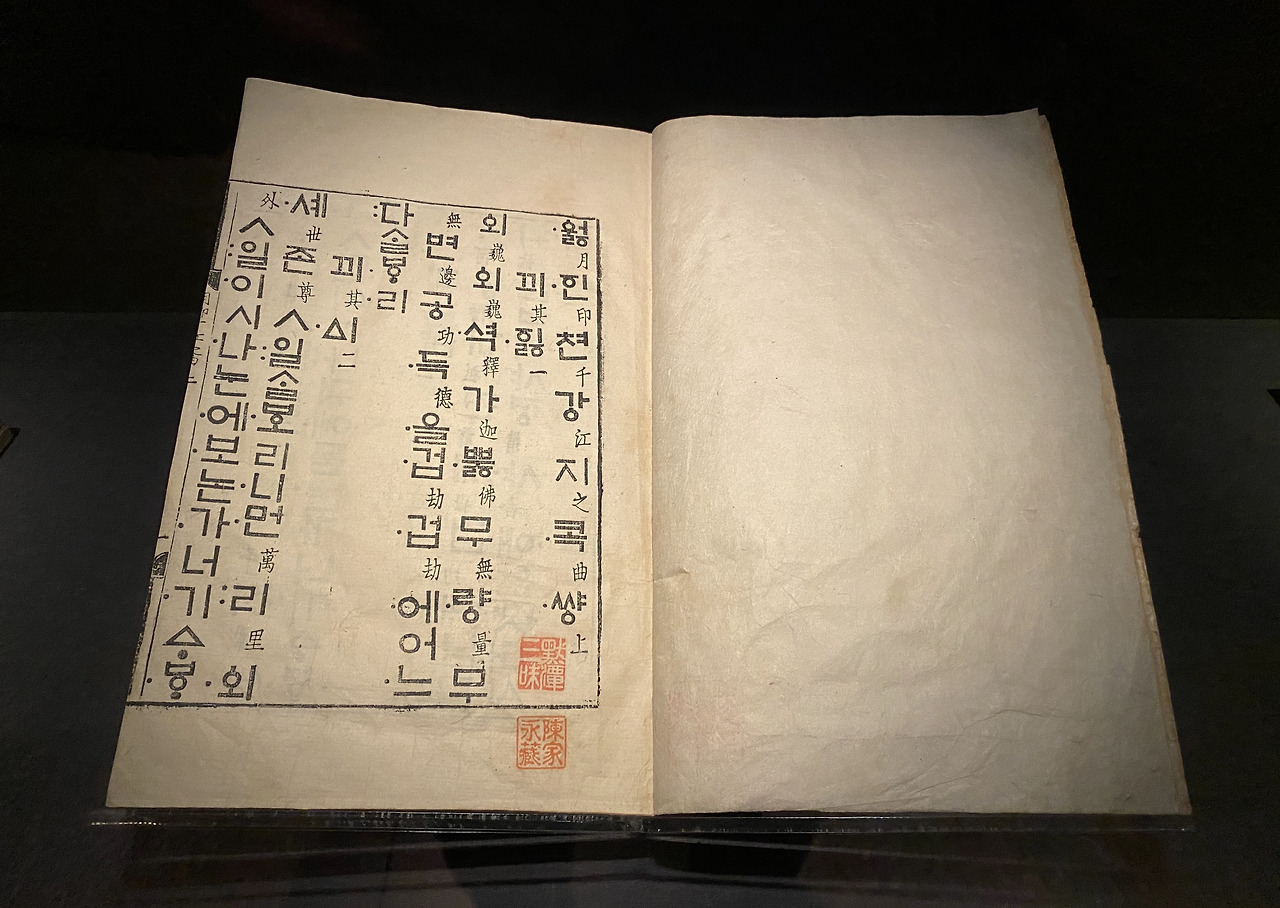 ·ᅌᅯᇙ月·ᅙᅵᆫ印쳔千강江지之·콕曲·썅上
끠其·ᅙᅵᇙ一
외巍외巍·셕釋가迦·뿌ᇙ佛무無·량量무
無변邊공功·득德·을·겁劫·겁劫·에어느
:다ᄉᆞᆯᄫᆞ·리
끠其·ᅀᅵ二
·셰世존尊ㅅ:일ᄉᆞᆯ·ᄫᅩ리·니·먼萬:리里·외
外ㅅ:일·이시·나·눈·에·보논·가너·기ᅀᆞ·ᄫᆞ
默潭三昧
陳家永藏